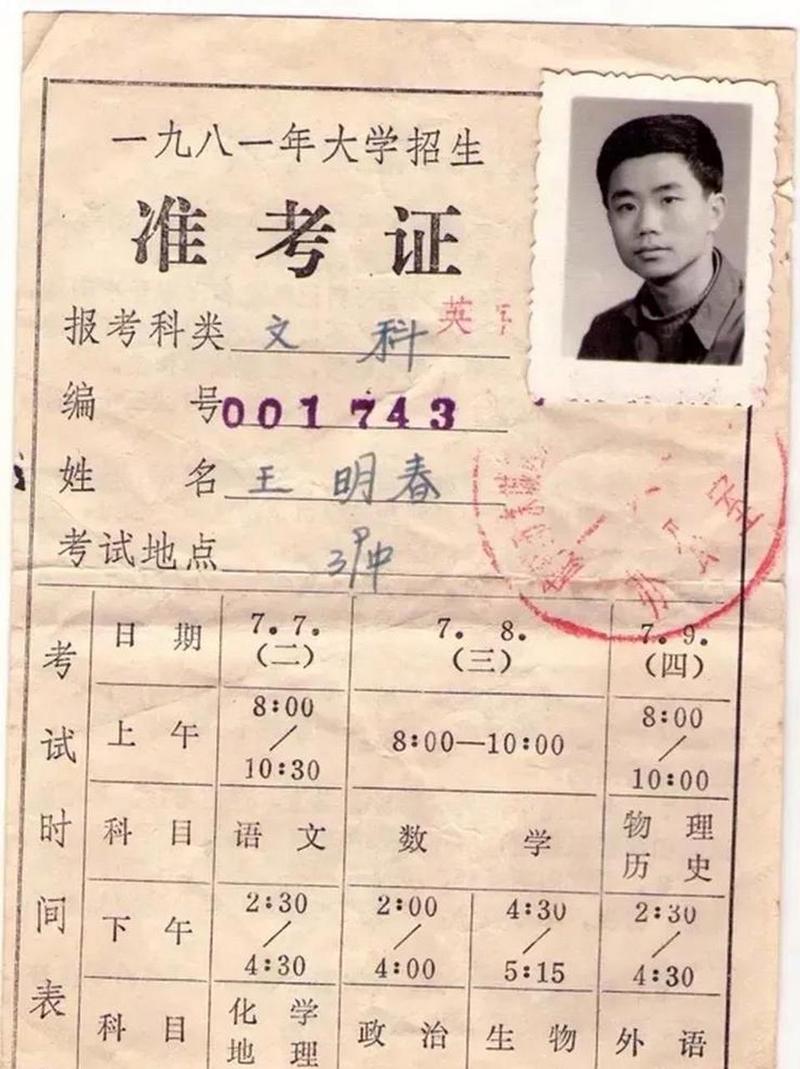 一九八一年大学招生
准考证
报考科类 文科 英
编号 001743
姓名 王明春
考试地点
办公室
考试时间表
日期 7.7.(二) 7.8.(三) 7.9.(四)
上午 8:00/10:30 8:00—10:00 8:00/10:00
科目 语文 数学 物理 历史
下午 2:30/4:30 2:00/4:00 4:30/5:15 2:30/4:30
科目 化学 地理 政治 生物 外语